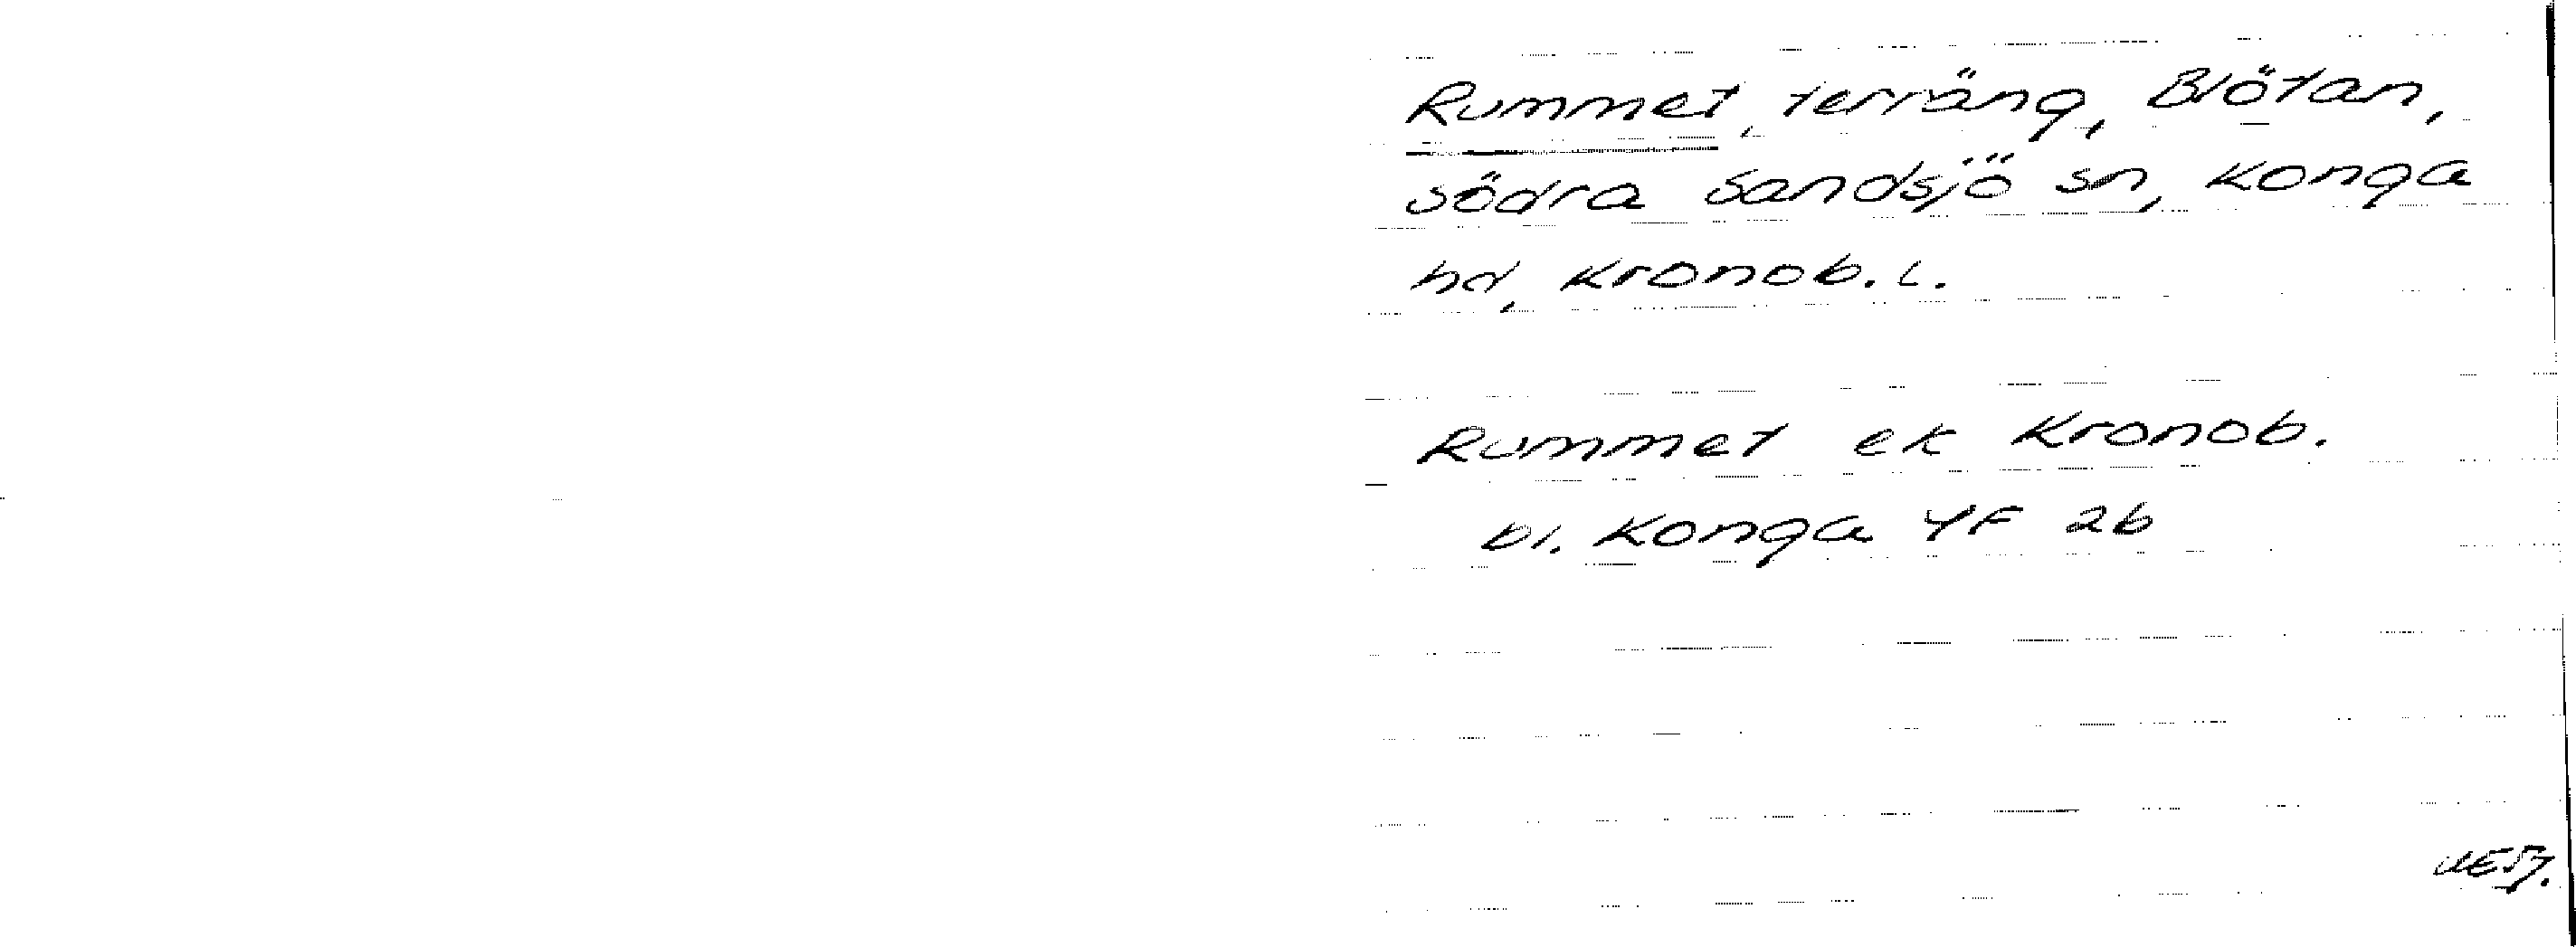 Rummet, terräng, Blötan,
södra Sandsjö sn, Konga
hd, Kronob. l.
Rummet ek Kronob.
bl. Konga YF 2b